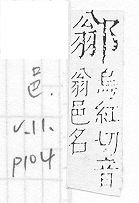 烏紅切音
翁邑名
邑.
v.11.
p104